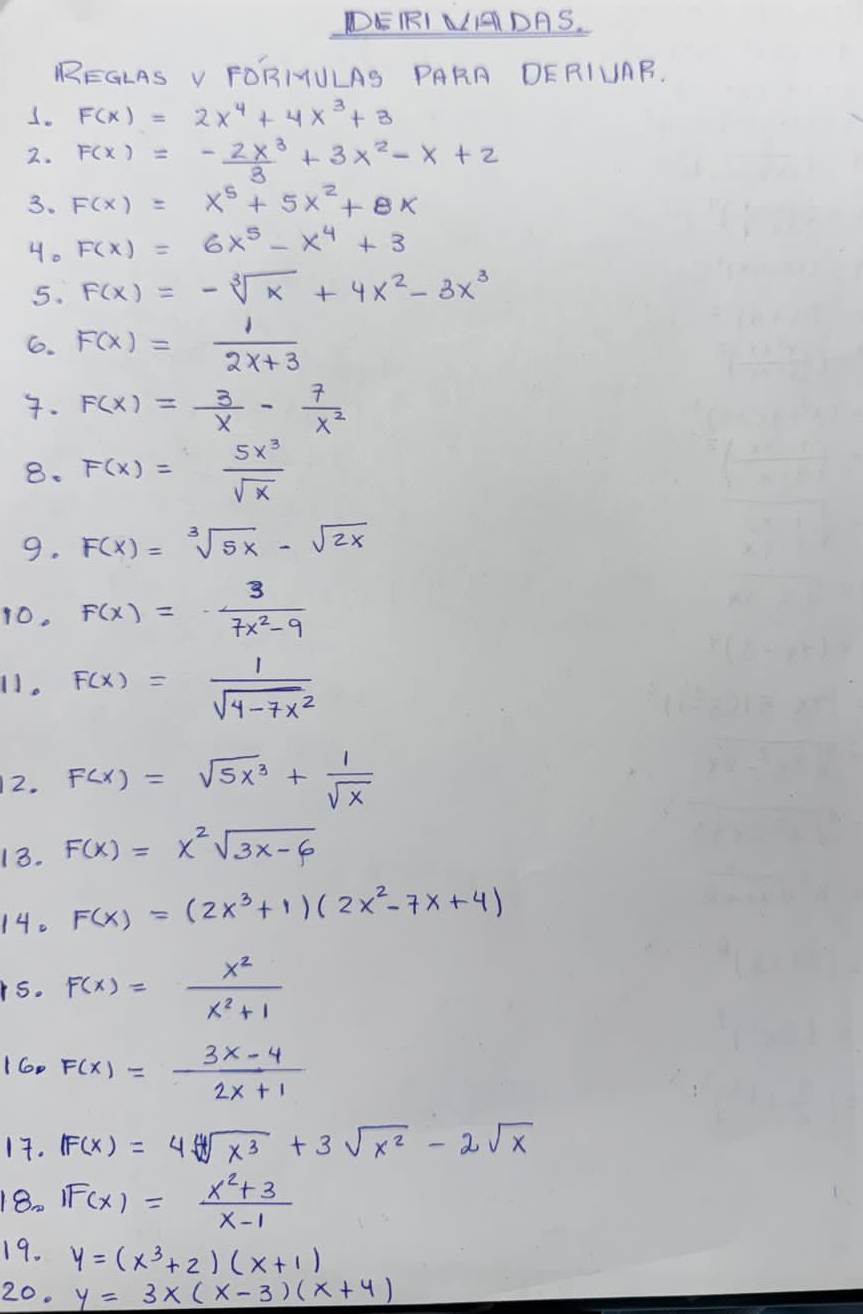 DERIVADAS.
REGLAS Y FÓRMULAS PARA DERIVAR.
1. F(x) = 2x⁴ + 4x³ + 3
2. F(x) = - 2x³/3 + 3x² - x + 2
3. F(x) = x⁵ + 5x² + 8x
4. F(x) = 6x⁵ - x⁴ + 3
5. F(x) = - ∛x + 4x² - 3x³
6. F(x) = 1/(2x+3)
7. F(x) = 3/x - 7/x²
8. F(x) = 5x³/√x
9. F(x) = ∛(5x) - √(2x)
10. F(x) = 3/(7x²-9)
11. F(x) = 1/√(4-7x²)
12. F(x) = √(5x³) + 1/√x
13. F(x) = x²√(3x-6)
14. F(x) = (2x³+1)(2x²-7x+4)
15. F(x) = x²/(x²+1)
16. F(x) = (3x-4)/(2x+1)
17. F(x) = 4√(x³) + 3√(x²) - 2√x
18. F(x) = (x²+3)/(x-1)
19. y = (x³+2)(x+1)
20. y = 3x(x-3)(x+4)